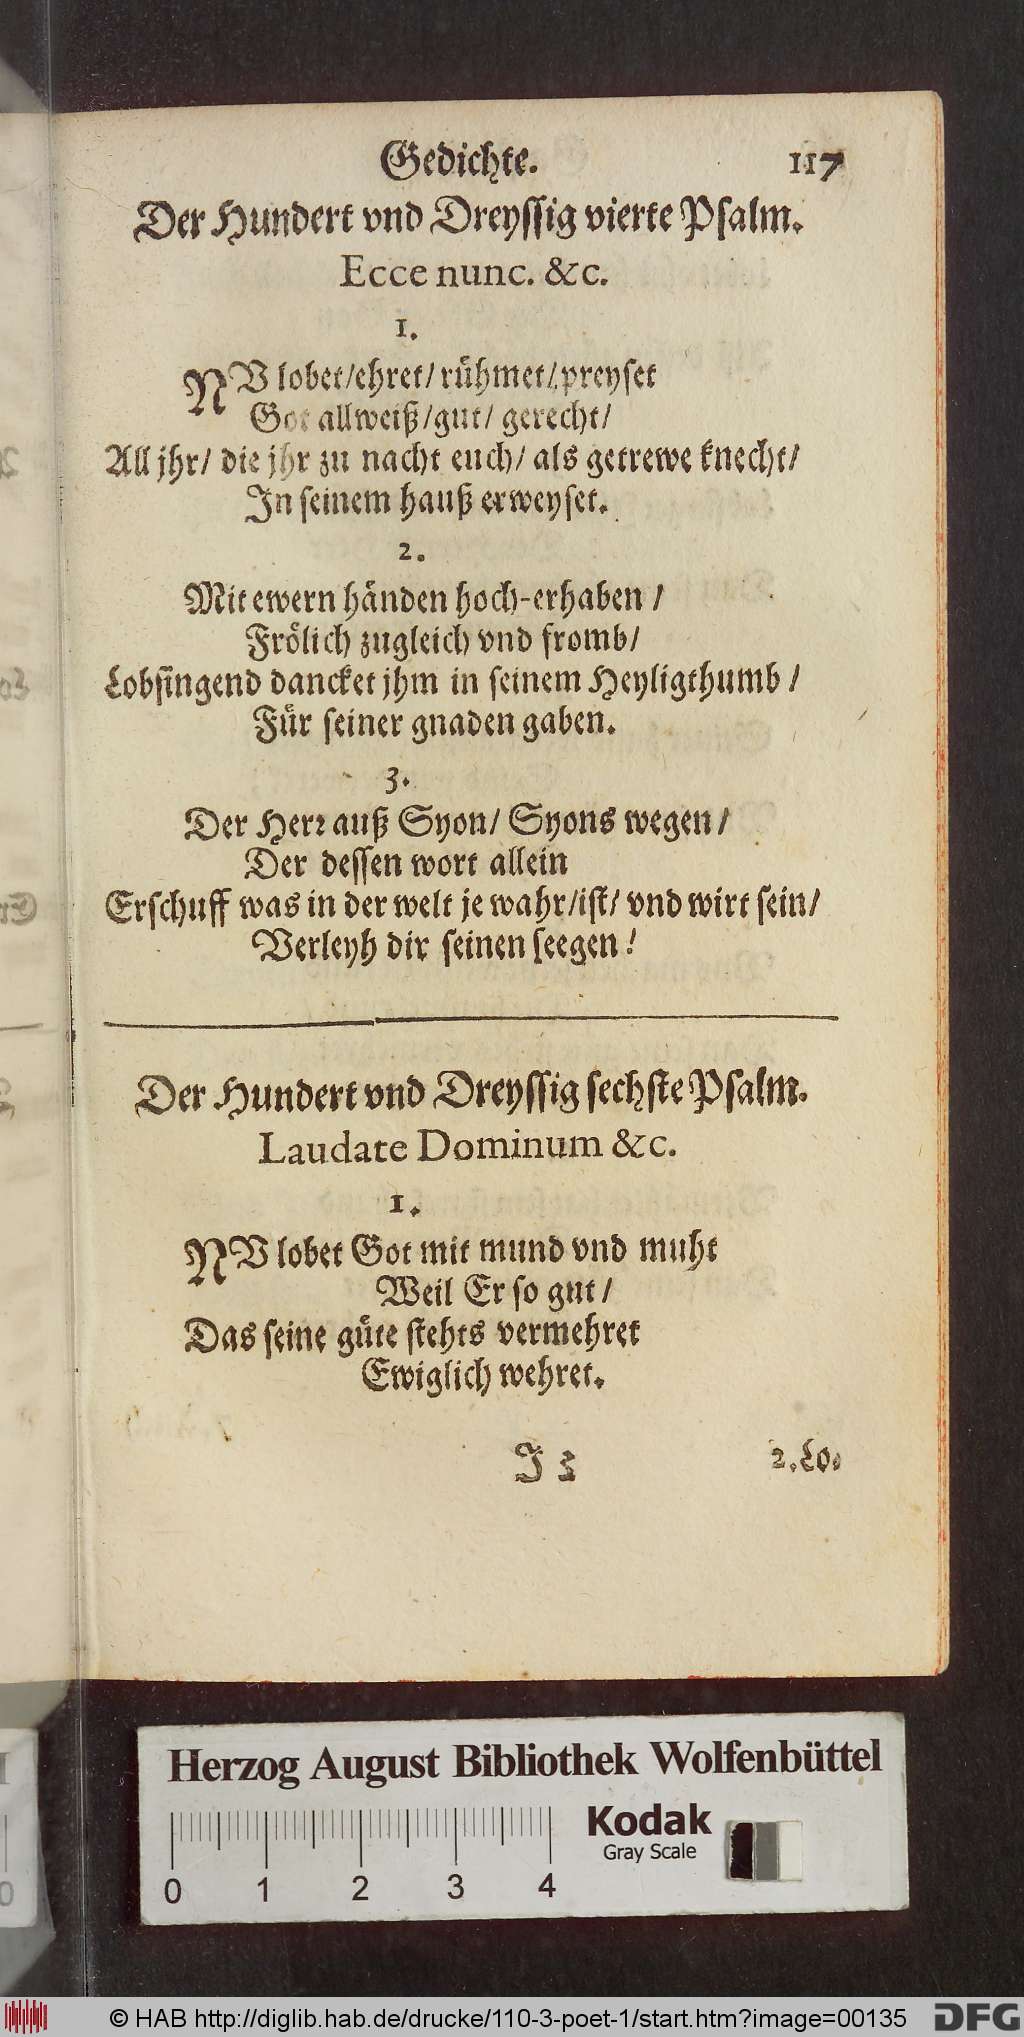 Gedichte. 117
Der Hundert vnd Dreyssig vierte Psalm.
Ecce nunc. &c.
1.
NV lobet/ehret/ rühmet/ preyset
Got allweiß/gut/ gerecht/
All jhr/ die jhr zu nacht euch/ als getrewe knecht/
In seinem hauß erweyset.
2.
Mit ewern händen hoch-erhaben /
Frölich zugleich vnd fromb/
Lobsingend dancket jhm in seinem Heyligthumb /
Für seiner gnaden gaben.
3.
Der Herr auß Syon/ Syons wegen /
Der dessen wort allein
Erschuff was in der welt je wahr/ist/ vnd wirt sein/
Verleyh dir seinen seegen!
Der Hundert vnd Dreyssig sechste Psalm.
Laudate Dominum &c.
1.
NV lobet Got mit mund vnd muht
Weil Er so gut /
Das seine güte stehts vermehret
Ewiglich wehret.
I 3 2. Lo.
Herzog August Bibliothek Wolfenbüttel
Kodak
Gray Scale
0 1 2 3 4
© HAB http://diglib.hab.de/drucke/110-3-poet-1/start.htm?image=00135
DFG